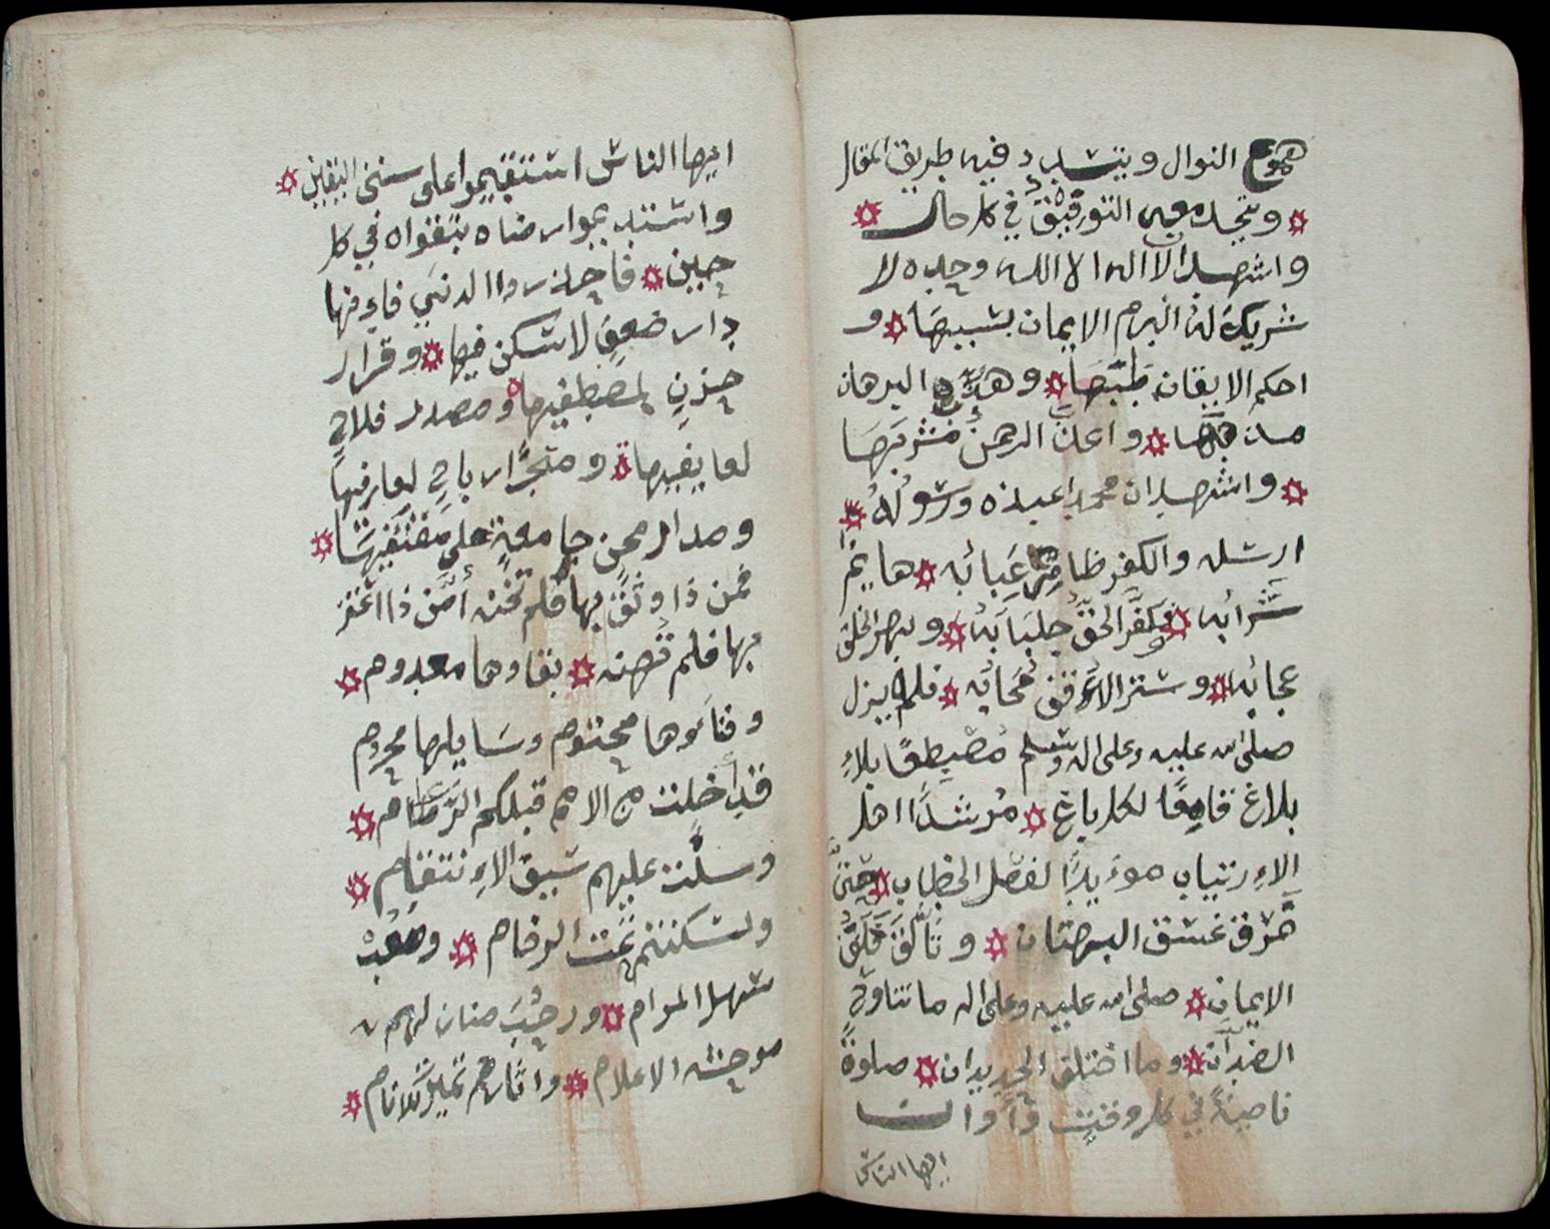 هموع النوال ويتسدد فيه طريق المقال
ويتجدد معه التوفيق في كل حال
واشهد الا اله الا الله وحده لا
شريك له ابرم الايمان بسببها و
احكم الايقان طنبها وهذب البرهان
مذهبها واعلن الرهن مشربها
واشهد ان محمدا عبده ورسوله
ارسله والكفر ظاهر عبابه هايم
سرابه فكفر الحق جلبابه وبهر الخلق
عجابه وستر الافق فلم يزل
صلى الله عليه وعلى اله وسلم مصطعا بلاء
بلاغ قامعا لكل باغ مرشدا اهل
الاءرتياب موءيدا لفصل الخطاب حتى
مزق غسق البهتان وتالق فلق
الايمان صلى الله عليه وعلى اله ما تناوح
وما اختلق الجديدان صلوة
ناصية في كل وقت واوان
ايها الناس
ايها الناس استقيموا على سنن اليقين
واستديموا رضاه بتقواه في كل
حين فاحذروا الدنيى فاءنها
دار ضعف لا سكن فيها وقرار
حزن لمصطفيها ومصدر فلاح
لعايفيها ومتجرار باح لعارفيها
ومدار محن جامعة على مقتفيها
فمن ذا وثق بها فلم تخنه امن ذا اعتز
بها فلم تهنه بقاوها معدوم
وفناءوها محتوم وسايلها محروم
قد اخلت من الامم قبلكم
وسلت عليهم سيف الاءنتقام
ولسكنتهم تحت الرخام وصعب
سهل المرام ورحب منان لهم
موحشه الاعلام واثارهم تميز للانام